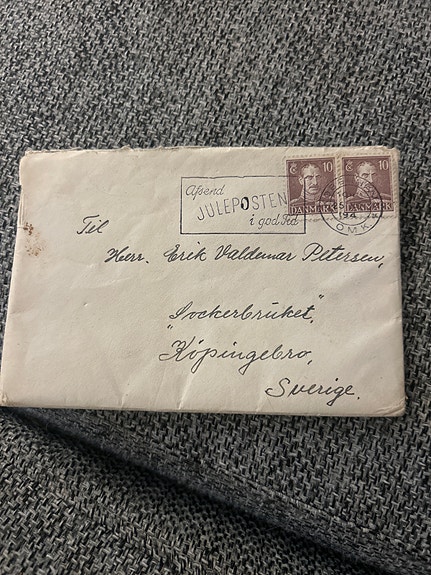 10 10
DANMARK DANMARK
Afsend
JULEPOSTEN
i god Tid
194
OMK
Til
Herr. Erik Valdemar Petersen,
"Sockerbruket",
Köpingebro,
Sverige.